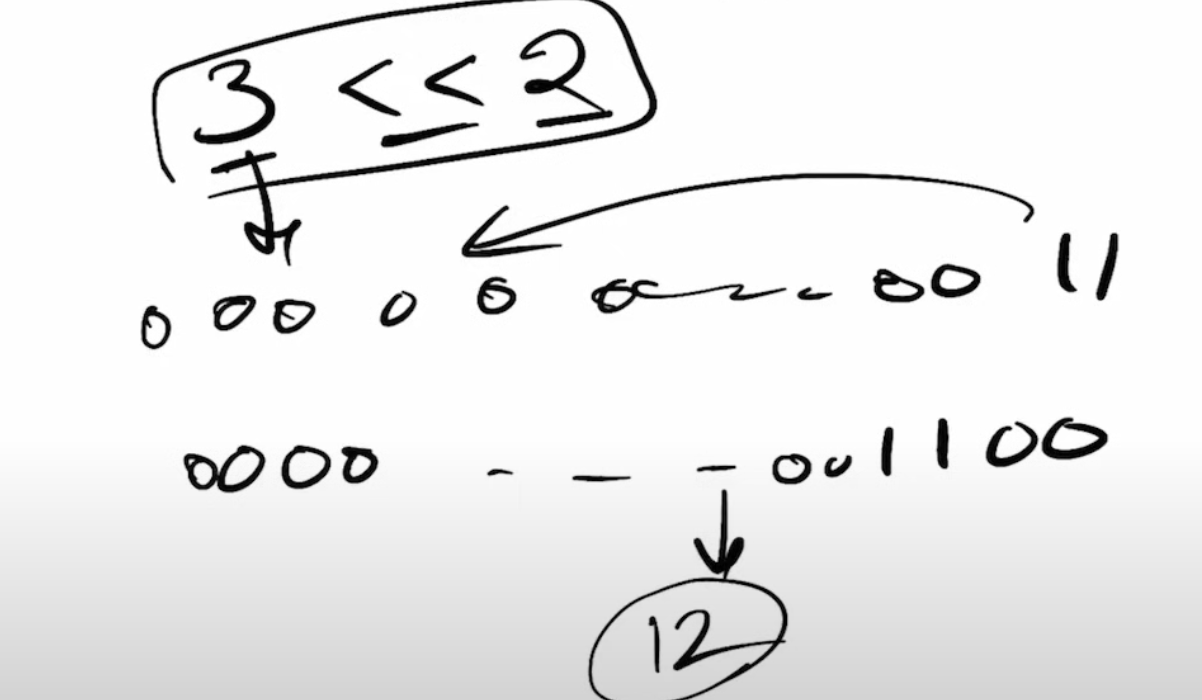 3 << 2
0 00 0 0 0 ~ - 00 11
0000 - - - 001100
12